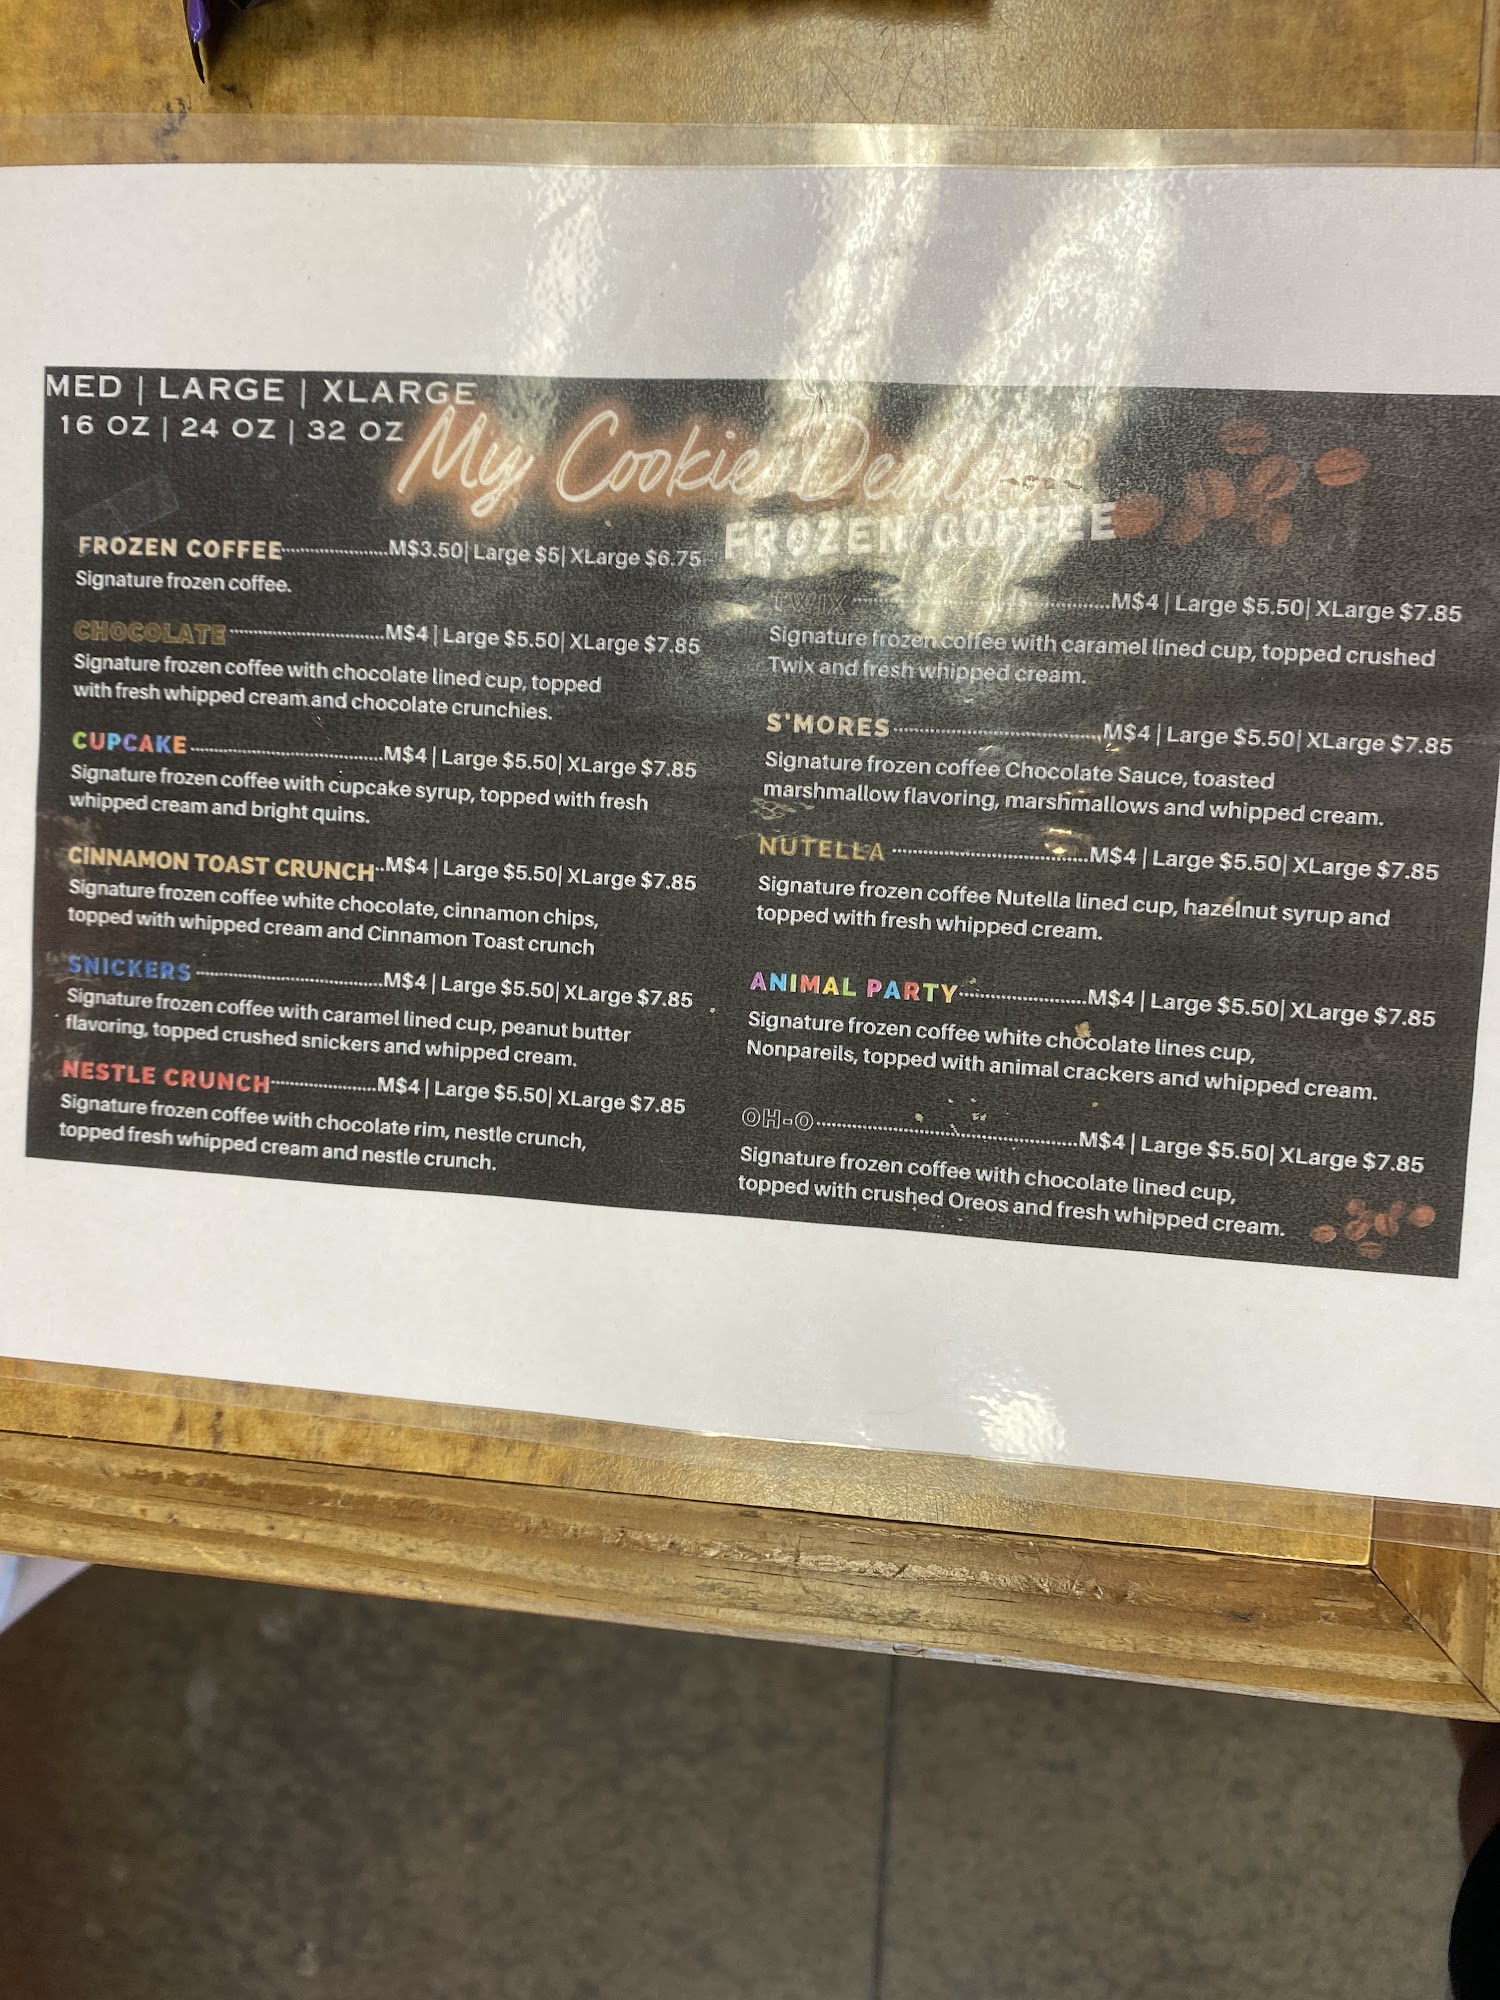 MED | LARGE | XLARGE
16 OZ | 24 OZ | 32 OZ
My Cookie Dealer
FROZEN COFFEE
FROZEN COFFEE....................M$3.50| Large $5| XLarge $6.75
Signature frozen coffee.
CHOCOLATE....................M$4 | Large $5.50| XLarge $7.85
Signature frozen coffee with chocolate lined cup, topped
with fresh whipped cream and chocolate crunchies.
CUPCAKE....................M$4 | Large $5.50| XLarge $7.85
Signature frozen coffee with cupcake syrup, topped with fresh
whipped cream and bright quins.
CINNAMON TOAST CRUNCH..M$4 | Large $5.50| XLarge $7.85
Signature frozen coffee white chocolate, cinnamon chips,
topped with whipped cream and Cinnamon Toast crunch
SNICKERS....................M$4 | Large $5.50| XLarge $7.85
Signature frozen coffee with caramel lined cup, peanut butter
flavoring, topped crushed snickers and whipped cream.
NESTLE CRUNCH....................M$4 | Large $5.50| XLarge $7.85
Signature frozen coffee with chocolate rim, nestle crunch,
topped fresh whipped cream and nestle crunch.
TWIX....................M$4 | Large $5.50| XLarge $7.85
Signature frozen coffee with caramel lined cup, topped crushed
Twix and fresh whipped cream.
S'MORES....................M$4 | Large $5.50| XLarge $7.85
Signature frozen coffee Chocolate Sauce, toasted
marshmallow flavoring, marshmallows and whipped cream.
NUTELLA....................M$4 | Large $5.50| XLarge $7.85
Signature frozen coffee Nutella lined cup, hazelnut syrup and
topped with fresh whipped cream.
ANIMAL PARTY....................M$4 | Large $5.50| XLarge $7.85
Signature frozen coffee white chocolate lines cup,
Nonpareils, topped with animal crackers and whipped cream.
OH-O....................M$4 | Large $5.50| XLarge $7.85
Signature frozen coffee with chocolate lined cup,
topped with crushed Oreos and fresh whipped cream.